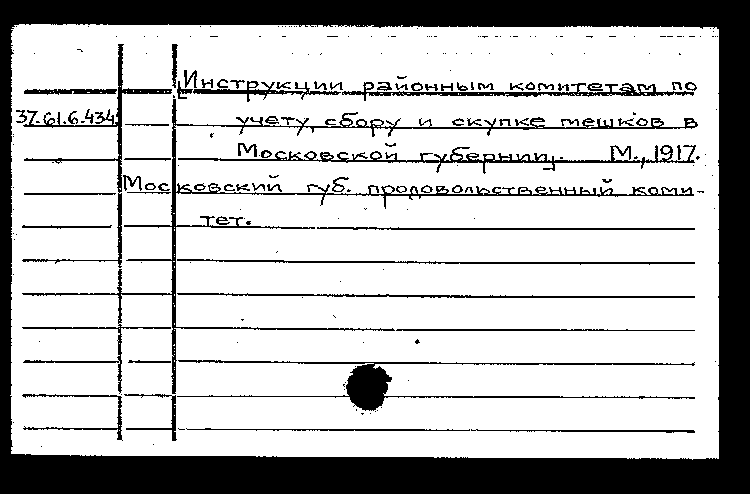 [Инструкции районным комитетам по
37.61.6.434 учету, сбору и скупке мешков в
Московской губернии]. М., 1917.
Московский губ. продовольственный коми-
тет.